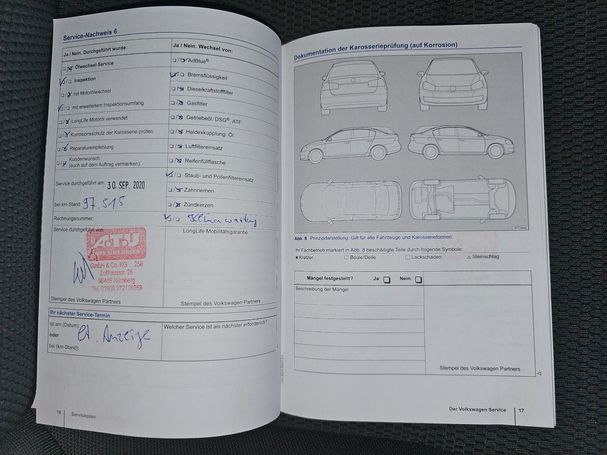 Service-Nachweis 6
Ja / Nein. Durchgeführt wurde:
Ölwechsel-Service
Inspektion
mit Motorölwechsel
mit erweitertem Inspektionsumfang
LongLife Motoröl verwendet
Korrosionsschutz der Karosserie prüfen
Reparaturempfehlung
Kundenwunsch
(auch auf dem Auftrag vermerken)
Service durchgeführt am: 30. SEP. 2020
bei km-Stand: 97.515
Rechnungsnummer:
Service durchgeführt von:
A.T.U
GmbH & Co. KG
Nürnberg
Stempel des Volkswagen Partners
Ja / Nein. Wechsel von:
AdBlue®
Bremsflüssigkeit
Dieselkraftstofffilter
Gasfilter
Getriebeöl, DSG®, ATF
Haldexkupplung: Öl
Luftfiltereinsatz
Reifenfüllflasche
Staub- und Pollenfiltereinsatz
Zahnriemen
Zündkerzen
LongLife Mobilitätsgarantie
Stempel des Volkswagen Partners
Ihr nächster Service-Termin
ist am (Datum):
oder
bei (km-Stand):
lt. Anzeige
Welcher Service ist als nächster erforderlich?
16 Serviceplan
Dokumentation der Karosserieprüfung (auf Korrosion)
Abb. 8 Prinzipdarstellung: Gilt für alle Fahrzeuge und Karosserieformen.
Ihr Fachbetrieb markiert in Abb. 8 beschädigte Teile durch folgende Symbole:
Kratzer
Beule/Delle
Lackschaden
Steinschlag
Mängel festgestellt? Ja: Nein:
Beschreibung der Mängel:
Stempel des Volkswagen Partners
Der Volkswagen Service 17